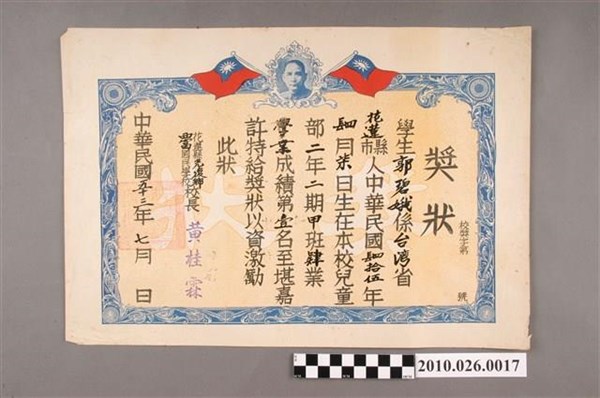 獎狀
校獎字第 號
學生郭碧娥係台灣省
花蓮縣市人中華民國肆拾伍年
肆月柒日生在本校兒童
部二年二期甲班肄業
學業成績第壹名至堪嘉
許特給獎狀以資激勵
此狀
校長 黃桂霖
中華民國五十三年七月 日
2010.026.0017